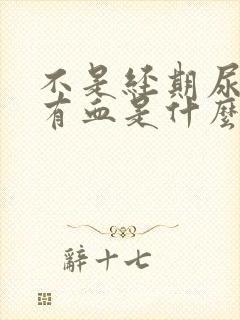 不是经期尿
有血是什麼
辭十七